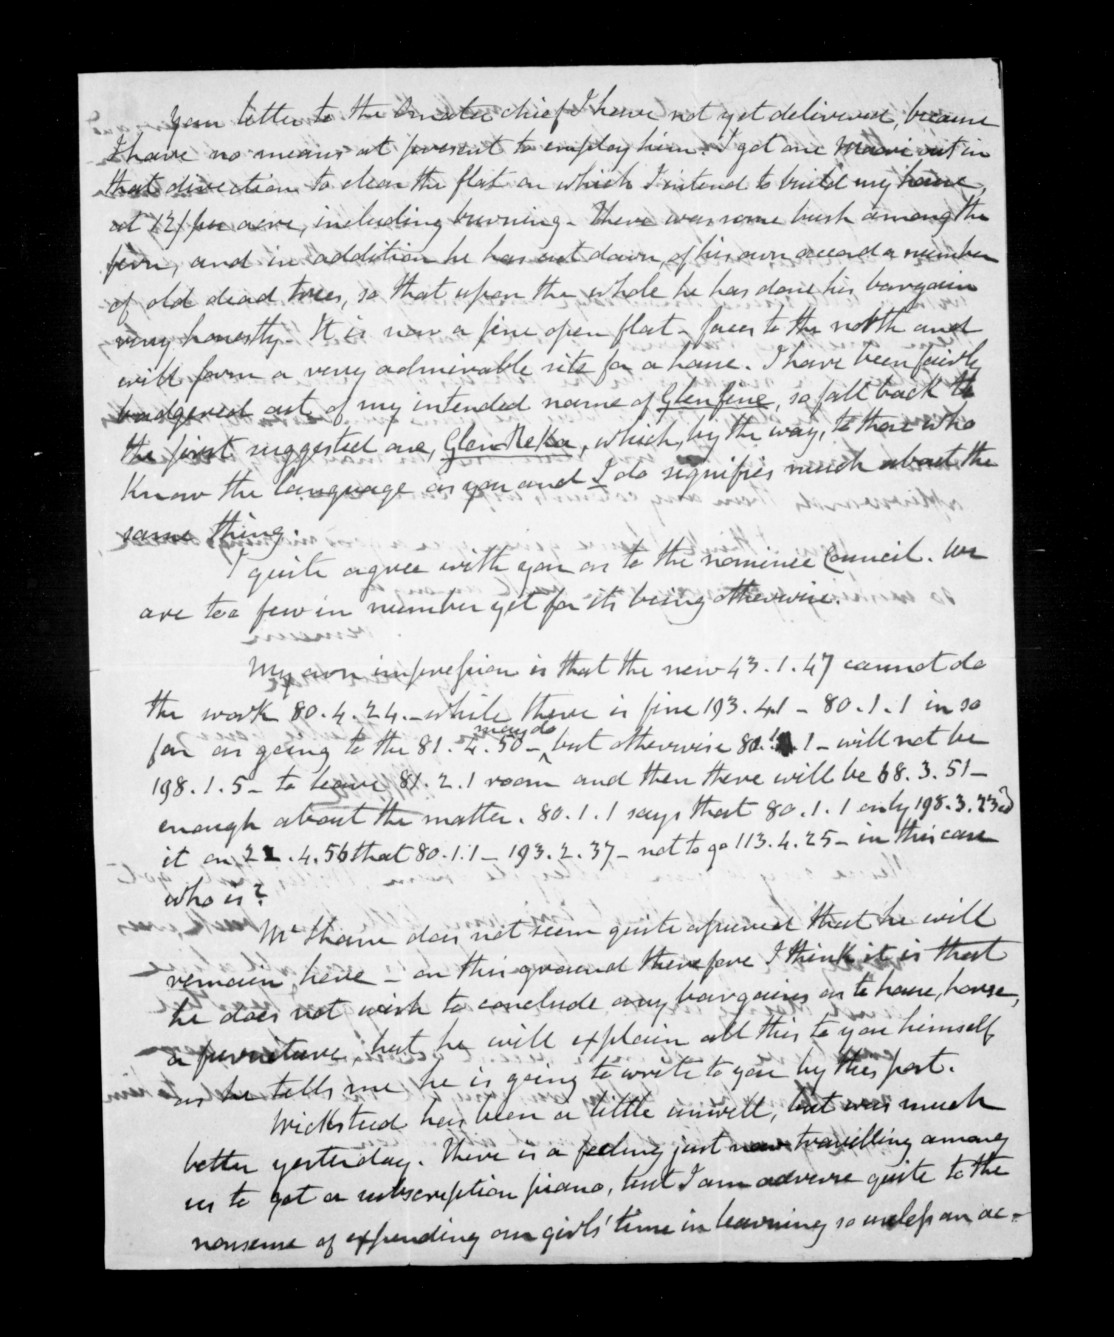 Your letter to the Omata chief I have not yet delivered, because
I have no means at present to employ him. I got one Maori out in
that direction to clear the flat on which I intend to build my house,
at 12/ per acre, including burning - There was some bush among the
fern, and in addition he has cut down of his own accord a number
of old dead trees, so that upon the whole he has done his bargain
very honestly. It is now a fine open flat - faces to the north and
will form a very admirable site for a house. I have been fairly
badgered out of my intended name of Glenfine, so fall back to
the first suggested one, Glen Reka, which, by the way, to those who
know the language as you and I do signifies much about the
same thing.
I quite agree with you as to the nominee Council. We
are too few in number yet for its being otherwise.
My own impression is that the new 43.1.47 cannot do
the work 80.4.24. - while there is fine 193.41 - 80.1.1 in so
far as going to the 81.4.50 - may do but otherwise 80.1.1 - will not be
198.1.5 - to leave 81.2.1 room and then there will be 68.3.51 -
enough about the matter. 80.1.1 says that 80.1.1 only 198.3.23
it on 22.4.56 that 80.1.1 - 193.2.37 - not to go 113.4.25 - in this case
who is?
Mr does not seem quite assured that he will
remain here - on this ground therefore I think it is that
he does not wish to conclude any bargains as to house, horse,
or furniture, but he will explain all this to you himself
as he tells me he is going to write to you by this post.
Wicksteed has been a little unwell, but was much
better yesterday. There is a feeling just now travelling among
us to get a subscription piano, but I am adverse quite to the
nonsense of expending our girls' time in learning so useless an ac-